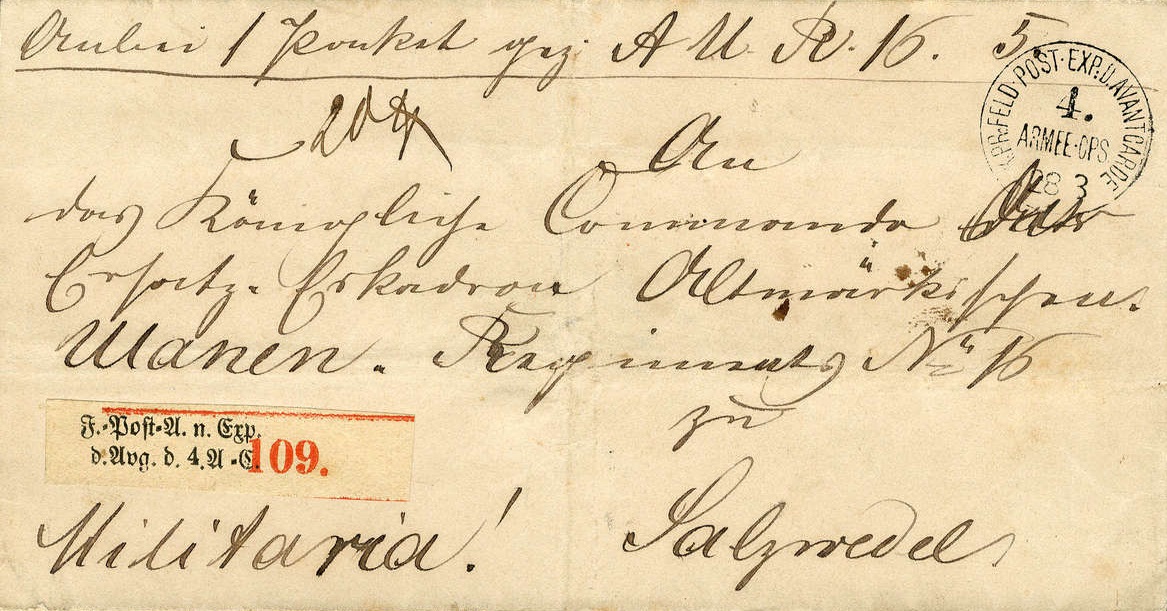 Anbei 1 Packet gez. A U. R. 16. 5
KPR. FELD-POST-EXP. D. AVANTGARDE
4.
ARMEE-CPS
28 3
An
das Königliche Commando der
Ersatz-Eskadron Altmärkischen
Ulanen-Regiments No 16
zu
F.-Post-A. n. Exp.
d. Avg. d. 4. A-C. 109.
Militaria!
Salzwedel